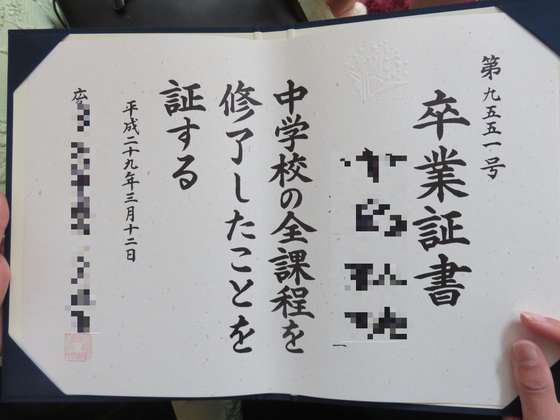 第九五五一号
卒業証書
中学校の全課程を
修了したことを
証する
平成二十九年三月十二日